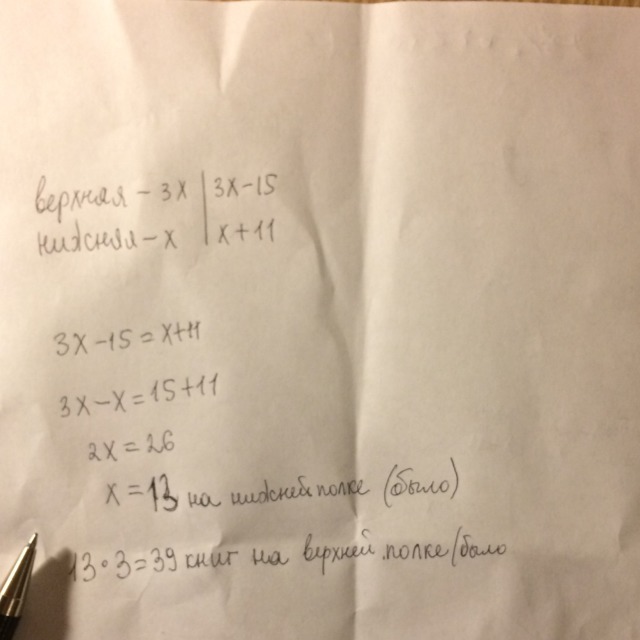 верхная - 3x | 3x-15
нижняя - x | x+11
3x-15=x+11
3x-x=15+11
2x=26
x=13 на нижней полке (было)
13•3=39 книг на верхней полке (было